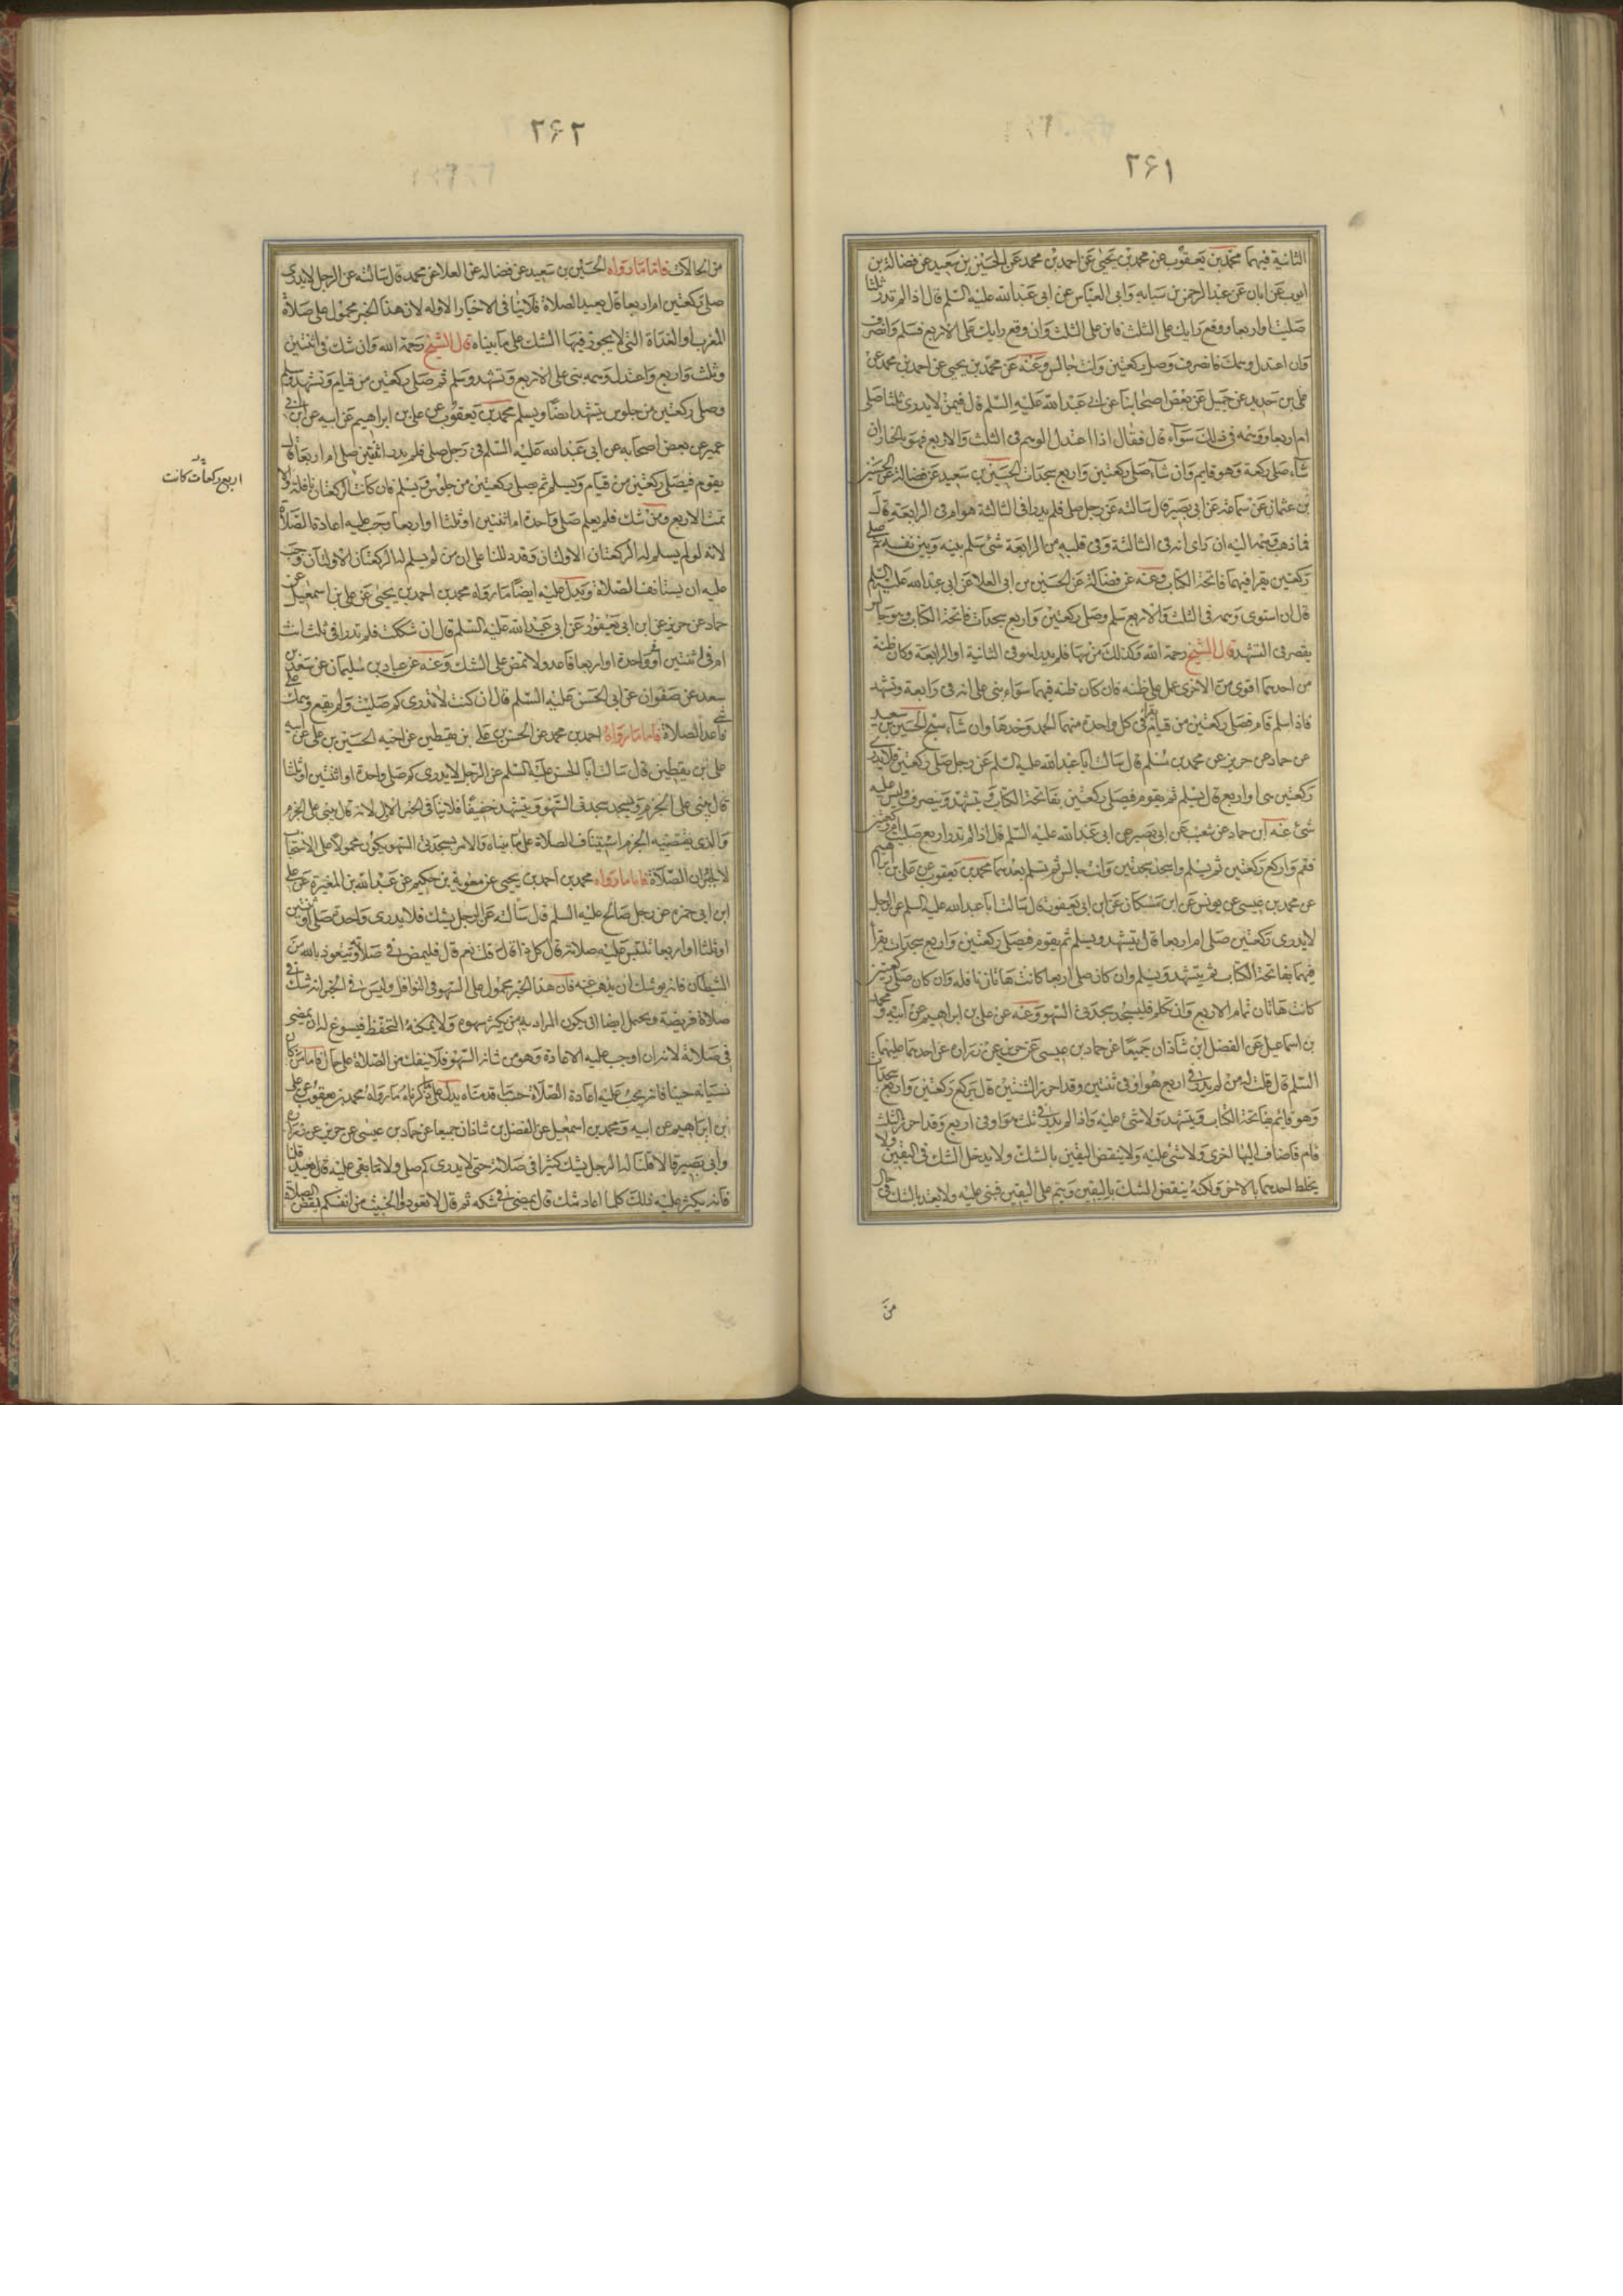 ۲۶۱
الثانية فيهما محمد بن يعقوب عن محمد بن يحيى عن احمد بن محمد عن الحسين بن سعيد عن فضالة بن
ايوب عن ابان عن عبد الرحمن بن سيابه وابى العباس عن ابى عبد الله عليه السلم قال اذا لم تدر ثلثا
صليت او اربعا ووقع رايك على الثلث فابن على الثلث وان وقع رايك على الاربع فسلم وانصرف
وان اعتدل وهمك فانصرف وصل ركعتين وانت جالس وعنه عن محمد بن يحيى عن احمد بن محمد عن
على بن حديد عن جميل عن بعض اصحابنا عن ابى عبد الله عليه السلم قال فيمن لا يدرى ثلثا صلى
ام اربعا ووهمه فى ذلك سوآء قال فقال اذا اعتدل الوهم فى الثلث والاربع فهو بالخيار ان
شآء صلى ركعة وهو قايم وان شآء صلى ركعتين واربع سجدات الحسين بن سعيد عن فضالة عن الحسين
بن عثمان عن سماعة عن ابى بصير قال سالته عن رجل صلى فلم يدر افى الثالثة هو ام فى الرابعة قال
فما ذهب وهمه اليه ان راى انه فى الثالثة وفى قلبه من الرابعة شئ سلم بينه وبين نفسه ثم صلى
ركعتين يقرا فيهما فاتحة الكتاب وعنه عن فضالة عن الحسين بن ابى العلا عن ابى عبد الله عليه السلم
قال ان استوى وهمه فى الثلث والاربع سلم وصلى ركعتين واربع سجدات فاتحة الكتاب وهو جالس
يقصر فى التشهد قال الشيخ رحمة الله وكذلك من سها فلم يدر اهو فى الثانية او الرابعة وكان ظنه
من احدهما اقوى من الاخرى عمل على ظنه فان كان ظنه فيهما سواء بنى على انه فى رابعة وتشهد
فاذا سلم قام فصلى ركعتين من قيام يقرا فى كل واحدة منهما الحمد وحدها وان شآء سبح الحسين بن سعيد
عن حماد عن حريز عن محمد بن مسلم قال سالت ابا عبد الله عليه السلم عن رجل صلى ركعتين فلا يدرى
ركعتين هى او اربع قال يسلم ثم يقوم فيصلى ركعتين بفاتحة الكتاب ويتشهد وينصرف وليس عليه
شئ عنه ابن حماد عن شعيب عن ابى بصير عن ابى عبد الله عليه السلم قال اذا لم تدر اربع صليت ام ركعتين
فقم واركع ركعتين ثم يسلم واسجد سجدتين وانت جالس ثم تسلم بعدهما محمد بن يعقوب عن على بن ابراهيم
عن محمد بن عيسى عن يونس عن ابن مسكان عن ابن ابى يعفور قال سالت ابا عبد الله عليه السلم عن الرجل
لا يدرى ركعتين صلى ام اربعا قال يتشهد ويسلم ثم يقوم فيصلى ركعتين واربع سجدات يقرأ
فيهما بفاتحة الكتاب ثم يتشهد ويسلم وان كان صلى اربعا كانت هاتان نافله وان كان صلى ركعتين
كانت هاتان تمام الاربع وان تكلم فليسجد سجدتى السهو وعنه عن على بن ابراهيم عن ابيه ومحمد
بن اسماعيل عن الفضل ابن شاذان جميعا عن حماد بن عيسى عن حريز عن زراره عن احدهما عليهما
السلم قال قلت له من لم يدر فى اربع هو او فى ثنتين وقد احرز الثنتين قال يركع ركعتين واربع سجدات
وهو قائم بفاتحة الكتاب ويتشهد ولا شئ عليه واذا لم يدر فى ثلث هو او فى اربع وقد احرز الثلث
قام فاضاف اليها اخرى ولا شئ عليه ولا ينقض اليقين بالشك ولا يدخل الشك فى اليقين ولا
يخلط احدهما بالاخر ولكنه ينقض الشك باليقين ويتم على اليقين فيبنى عليه ولا يعتد بالشك فى حال
من
۲۶۲
من الحالات فاما ما رواه الحسين بن سعيد عن فضاله عن العلا عن محمد قال سالته عن الرجل لا يدرى
صلى ركعتين ام اربعا قال يعيد الصلاة فلا ينافى الاخبار الاوله لان هذا الخبر محمول على صلاة
المغرب او الغداة التى لا يجوز فيها الشك على ما بيناه قال الشيخ رحمة الله وان شك فى اثنتين
وثلث واربع واعتدل وهمه بنى على الاربع وتشهد وسلم ثم صلى ركعتين من قيام وتشهد وسلم
وصلى ركعتين من جلوس يتشهد ايضا ويسلم محمد بن يعقوب عن على بن ابراهيم عن ابيه عن ابن ابى
عمير عن بعض اصحابه عن ابى عبد الله عليه السلم فى رجل صلى فلم يدر اثنتين صلى ام اربعا قال
يقوم فيصلى ركعتين من قيام ويسلم ثم يصلى ركعتين من جلوس ويسلم فان كانت الركعتان نافلة والا
تمت الاربع ومن شك فلم يعلم صلى واحدة ام اثنتين او ثلثا او اربعا وجب عليه اعادة الصلاة
لانه لو لم يسلم له الركعتان الاولتان وقد دللنا على ان من لم يسلم له الركعتان الاولتان وجب
عليه ان يستانف الصلاة ويدل عليه ايضا ما رواه محمد بن احمد بن يحيى عن على بن اسمعيل عن
حماد عن حريز عن ابن ابى يعفور عن ابى عبد الله عليه السلم قال ان شككت فلم تدر افى ثلث انت
ام فى اثنتين او واحدة او اربعا فاعد ولا تمض على الشك وعنه عن عباد بن سليمان عن سعد بن
سعد عن صفوان عن ابى الحسن عليه السلم قال ان كنت لا تدرى كم صليت ولم يقع وهمك على شئ
فاعد الصلاة فاما ما رواه احمد بن محمد عن الحسن بن على بن يقطين عن اخيه الحسين بن على عن ابيه
على بن يقطين قال سالت ابا الحسن عليه السلم عن الرجل لا يدرى كم صلى واحدة او اثنتين او ثلثا
قال يبنى على الجزم ويسجد سجدتى السهو ويتشهد خفيفا فلا ينافى الخبر الاول لانه قال يبنى على الجزم
والذى يقتضيه الجزم استيناف الصلاة على ما بيناه والامر بسجدتى السهو يكون محمولا على الاستحباب
لا لجبران الصلاة فاما ما رواه محمد بن احمد بن يحيى عن معوية بن حكيم عن عبد الله بن المغيرة عن على
ابن ابى حمزه عن رجل صالح عليه السلم قال سالته عن الرجل يشك فلا يدرى واحدة صلى او ثنتين
او ثلثا او اربعا تلتبس عليه صلاته قال كل ذا قال قلت نعم قال فليمض فى صلاته ويتعوذ بالله من
الشيطان فانه يوشك ان يذهب عنه فان هذا الخبر محمول على السهو فى النوافل وليس فى الخبر انه شك فى
صلاة فريضة ويحتمل ايضا ان يكون المراد به من يكثر سهوه ولا يمكنه التحفظ فيسوغ له ان يمضى
فى صلاته لانه ان اوجب عليه الاعادة وهو من شانه السهو فلا ينفك من الصلاة على حال فاما من كان
نسيانه حينا فانه يجب عليه اعادة الصلاة حسب ما قدمناه يدل على ما ذكرناه ما رواه محمد بن يعقوب عن على
ابن ابراهيم عن ابيه ومحمد بن اسمعيل عن الفضل بن شاذان جميعا عن حماد بن عيسى عن حريز عن زراره
وابى بصير قالا قلنا له الرجل يشك كثيرا فى صلاته حتى لا يدرى كم صلى ولا ما بقى عليه قال يعيد قلنا
فانه يكثر عليه ذلك كلما اعاد شك قال يمضى فى شكه ثم قال لا تعودوا الخبيث من انفسكم بنقض الصلاة
اربع ركعات كانت